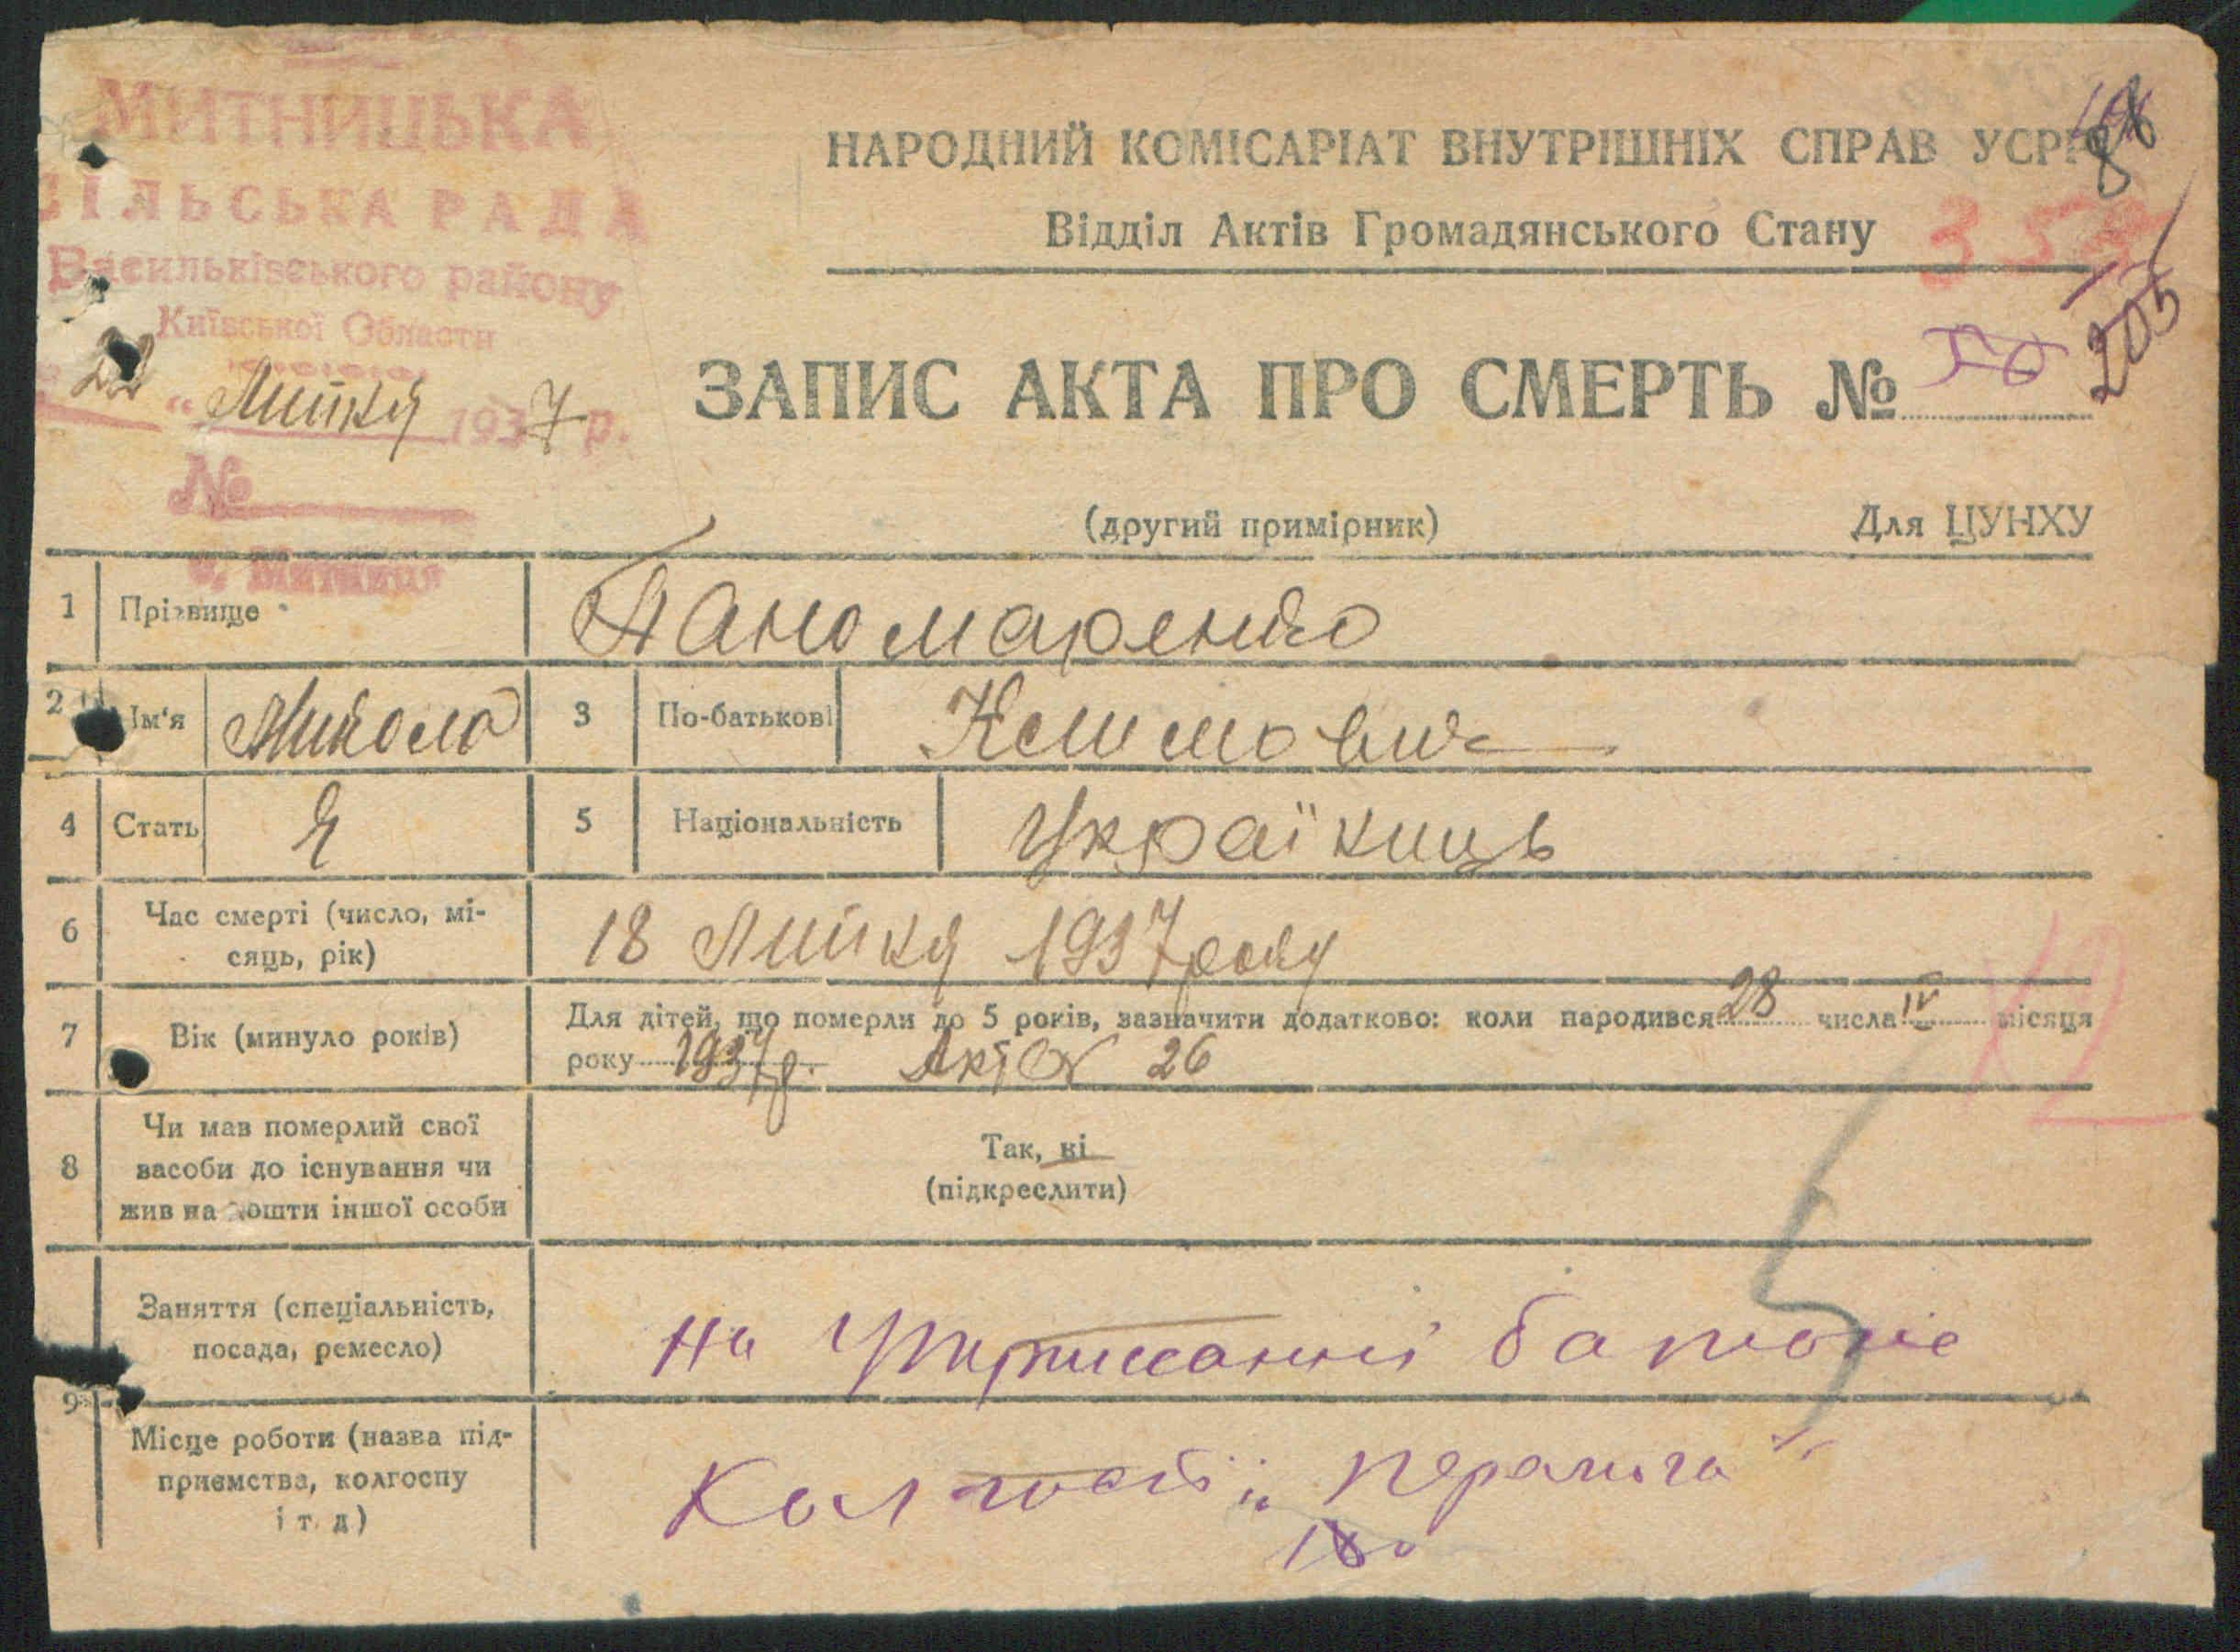 МИТНИЦЬКА
СІЛЬСЬКА РАДА
Васильківського району
Київської Области
22 " Липня 1937 р.
№
с. Митниця
НАРОДНИЙ КОМІСАРІАТ ВНУТРІШНІХ СПРАВ УСРР
Відділ Актів Громадянського Стану
35
205
ЗАПИС АКТА ПРО СМЕРТЬ № 56
(другий примірник) Для ЦУНХУ
1 Прізвище Паномаренко
2 Ім'я Микола 3 По-батькові Климович
4 Стать Ч 5 Національність Українець
6 Час смерті (число, мі-
сяць, рік) 18 Липня 1937 року
7 Вік (минуло років) Для дітей, що померли до 5 років, зазначити додатково: коли народився 28 числа IV місяця
року 1937 р. Акт № 26
8 Чи мав померлий свої
засоби до існування чи
жив на кошти іншої особи
Так, ні
(підкреслити)
9 Заняття (спеціальність,
посада, ремесло) На утриманні батьків
Місце роботи (назва під-
приємства, колгоспу
і т. д) Колгосп „Перемога"